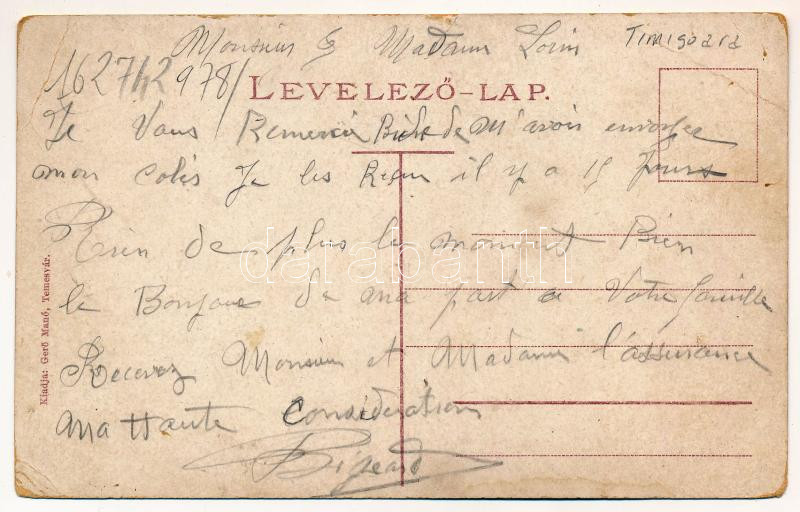 Monsieur & Madame Louis
Timisoara
162742978/
LEVELEZŐ-LAP.
Je Vous Remercie Bide de M'avoir envoyee
mon coles Je les Reçu il y a 15 Jours
Rien de plus le moment Bien
le Bonjour de ma part a Votre famille
Recevez Monsieur et Madame l'assurance
ma Haute Consideration
Kiadja: Gerő Manó, Temesvár.
darabanth